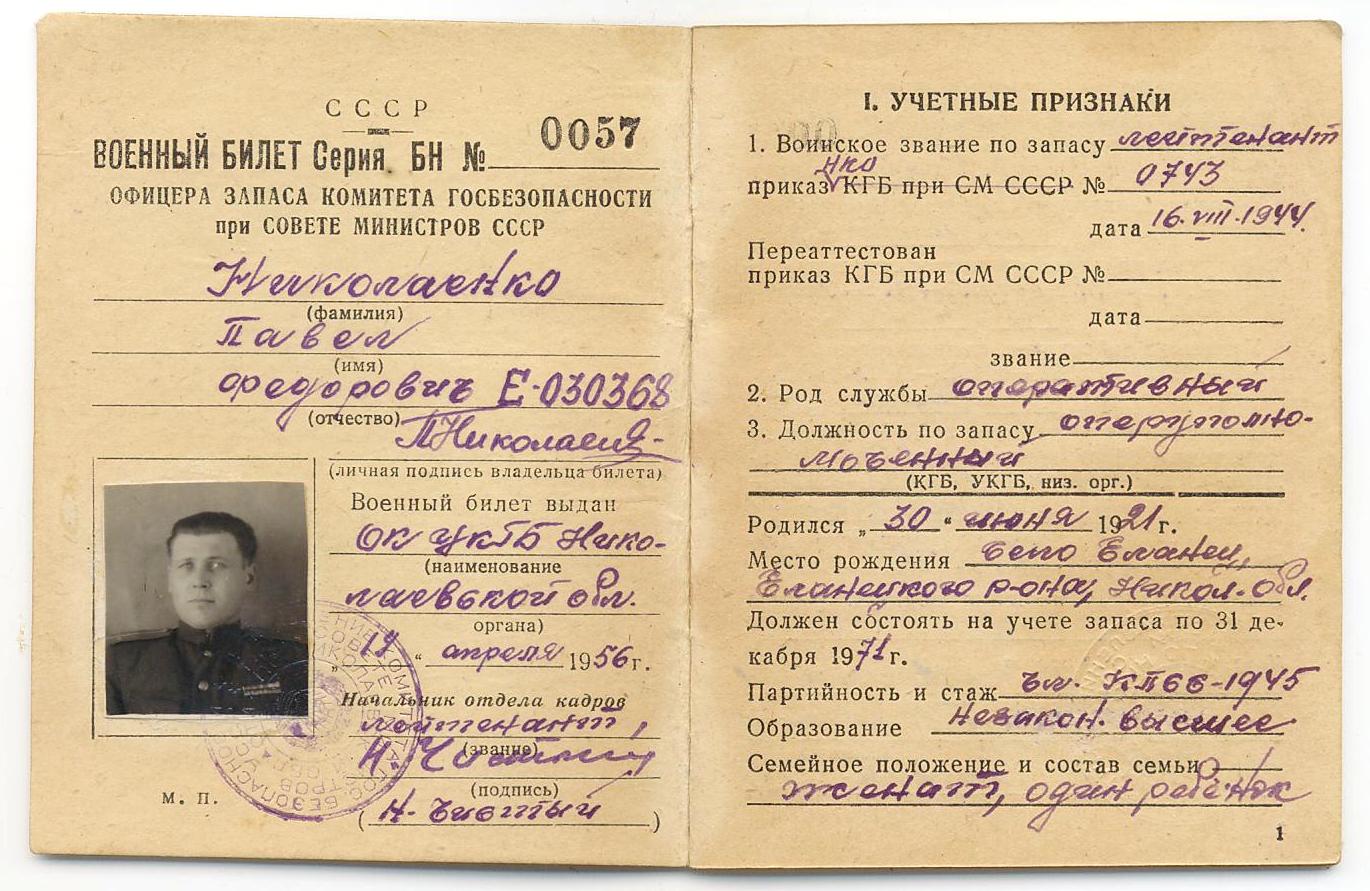 СССР
ВОЕННЫЙ БИЛЕТ Серия БН № 0057
ОФИЦЕРА ЗАПАСА КОМИТЕТА ГОСБЕЗОПАСНОСТИ
при СОВЕТЕ МИНИСТРОВ СССР
Николаенко
(фамилия)
Павел
(имя)
Федорович Е-030368
(отчество)
(личная подпись владельца билета)
Военный билет выдан
ОК УКГБ Нико-
(наименование
лаевской обл.
органа)
"19" апреля 1956 г.
Начальник отдела кадров
лейтенант,
(звание)
(подпись)
(Н. Чистый)
М. П.
I. УЧЕТНЫЕ ПРИЗНАКИ
1. Воинское звание по запасу лейтенант
НКО
приказ КГБ при СМ СССР № 0743
дата 16.VIII.1944.
Переаттестован
приказ КГБ при СМ СССР №
дата
звание
2. Род службы оперативный
3. Должность по запасу оперуполно-
моченный
(КГБ, УКГБ, низ. орг.)
Родился „30" июня 1921 г.
Место рождения село Еланец,
Еланецкого р-она, Никол. обл.
Должен состоять на учете запаса по 31 де-
кабря 1971 г.
Партийность и стаж чл. КПСС-1945
Образование незакон. высшее
Семейное положение и состав семьи
женат, один ребенок
1